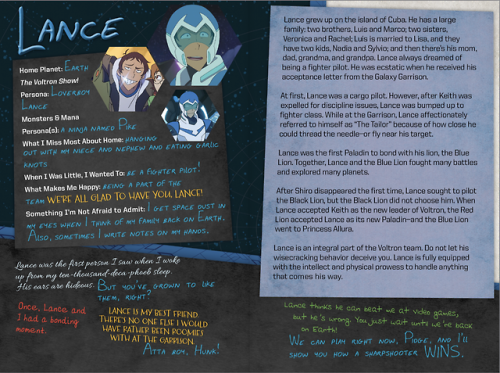 LANCE
Home Planet: EARTH
The Voltron Show!
Persona: LOVERBOY
LANCE
Monsters & Mana
Persona(s): A NINJA NAMED PIKE
What I Miss Most About Home: HANGING
OUT WITH MY NIECE AND NEPHEW AND EATING GARLIC
KNOTS
When I Was Little, I Wanted To: BE A FIGHTER PILOT!
What Makes Me Happy: BEING A PART OF THE
TEAM WE'RE ALL GLAD TO HAVE YOU, LANCE!
Something I'm Not Afraid to Admit: I GET SPACE DUST IN
MY EYES WHEN I THINK OF MY FAMILY BACK ON EARTH.
ALSO, SOMETIMES I WRITE NOTES ON MY HANDS.
Lance was the first person I saw when I woke
up from my ten-thousand-deca-phoeb sleep.
His ears are hideous. BUT YOU'VE GROWN TO LIKE
THEM, RIGHT?
Once, Lance and
I had a bonding
moment.
LANCE IS MY BEST FRIEND.
THERE'S NO ONE ELSE I WOULD
HAVE RATHER BEEN ROOMIES
WITH AT THE GARRISON.
ATTA BOY, HUNK!
Lance grew up on the island of Cuba. He has a large
family: two brothers, Luis and Marco; two sisters,
Veronica and Rachel; Luis is married to Lisa, and they
have two kids, Nadia and Sylvio; and then there's his mom,
dad, grandma, and grandpa. Lance always dreamed of
being a fighter pilot. He was ecstatic when he received his
acceptance letter from the Galaxy Garrison.
At first, Lance was a cargo pilot. However, after Keith was
expelled for discipline issues, Lance was bumped up to
fighter class. While at the Garrison, Lance affectionately
referred to himself as "The Tailor" because of how close he
could thread the needle—or fly near his target.
Lance was the first Paladin to bond with his lion, the Blue
Lion. Together, Lance and the Blue Lion fought many battles
and explored many planets.
After Shiro disappeared the first time, Lance sought to pilot
the Black Lion, but the Black Lion did not choose him. When
Lance accepted Keith as the new leader of Voltron, the Red
Lion accepted Lance as its new Paladin—and the Blue Lion
went to Princess Allura.
Lance is an integral part of the Voltron team. Do not let his
wisecracking behavior deceive you. Lance is fully equipped
with the intellect and physical prowess to handle anything
that comes his way.
Lance thinks he can beat me at video games,
but he's wrong. You just wait until we're back
on Earth!
WE CAN PLAY RIGHT NOW, PIDGE, AND I'LL
SHOW YOU HOW A SHARPSHOOTER WINS.